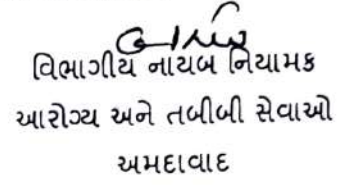 વિભાગીય નાયબ નિયામક
આરોગ્ય અને તબીબી સેવાઓ
અમદાવાદ